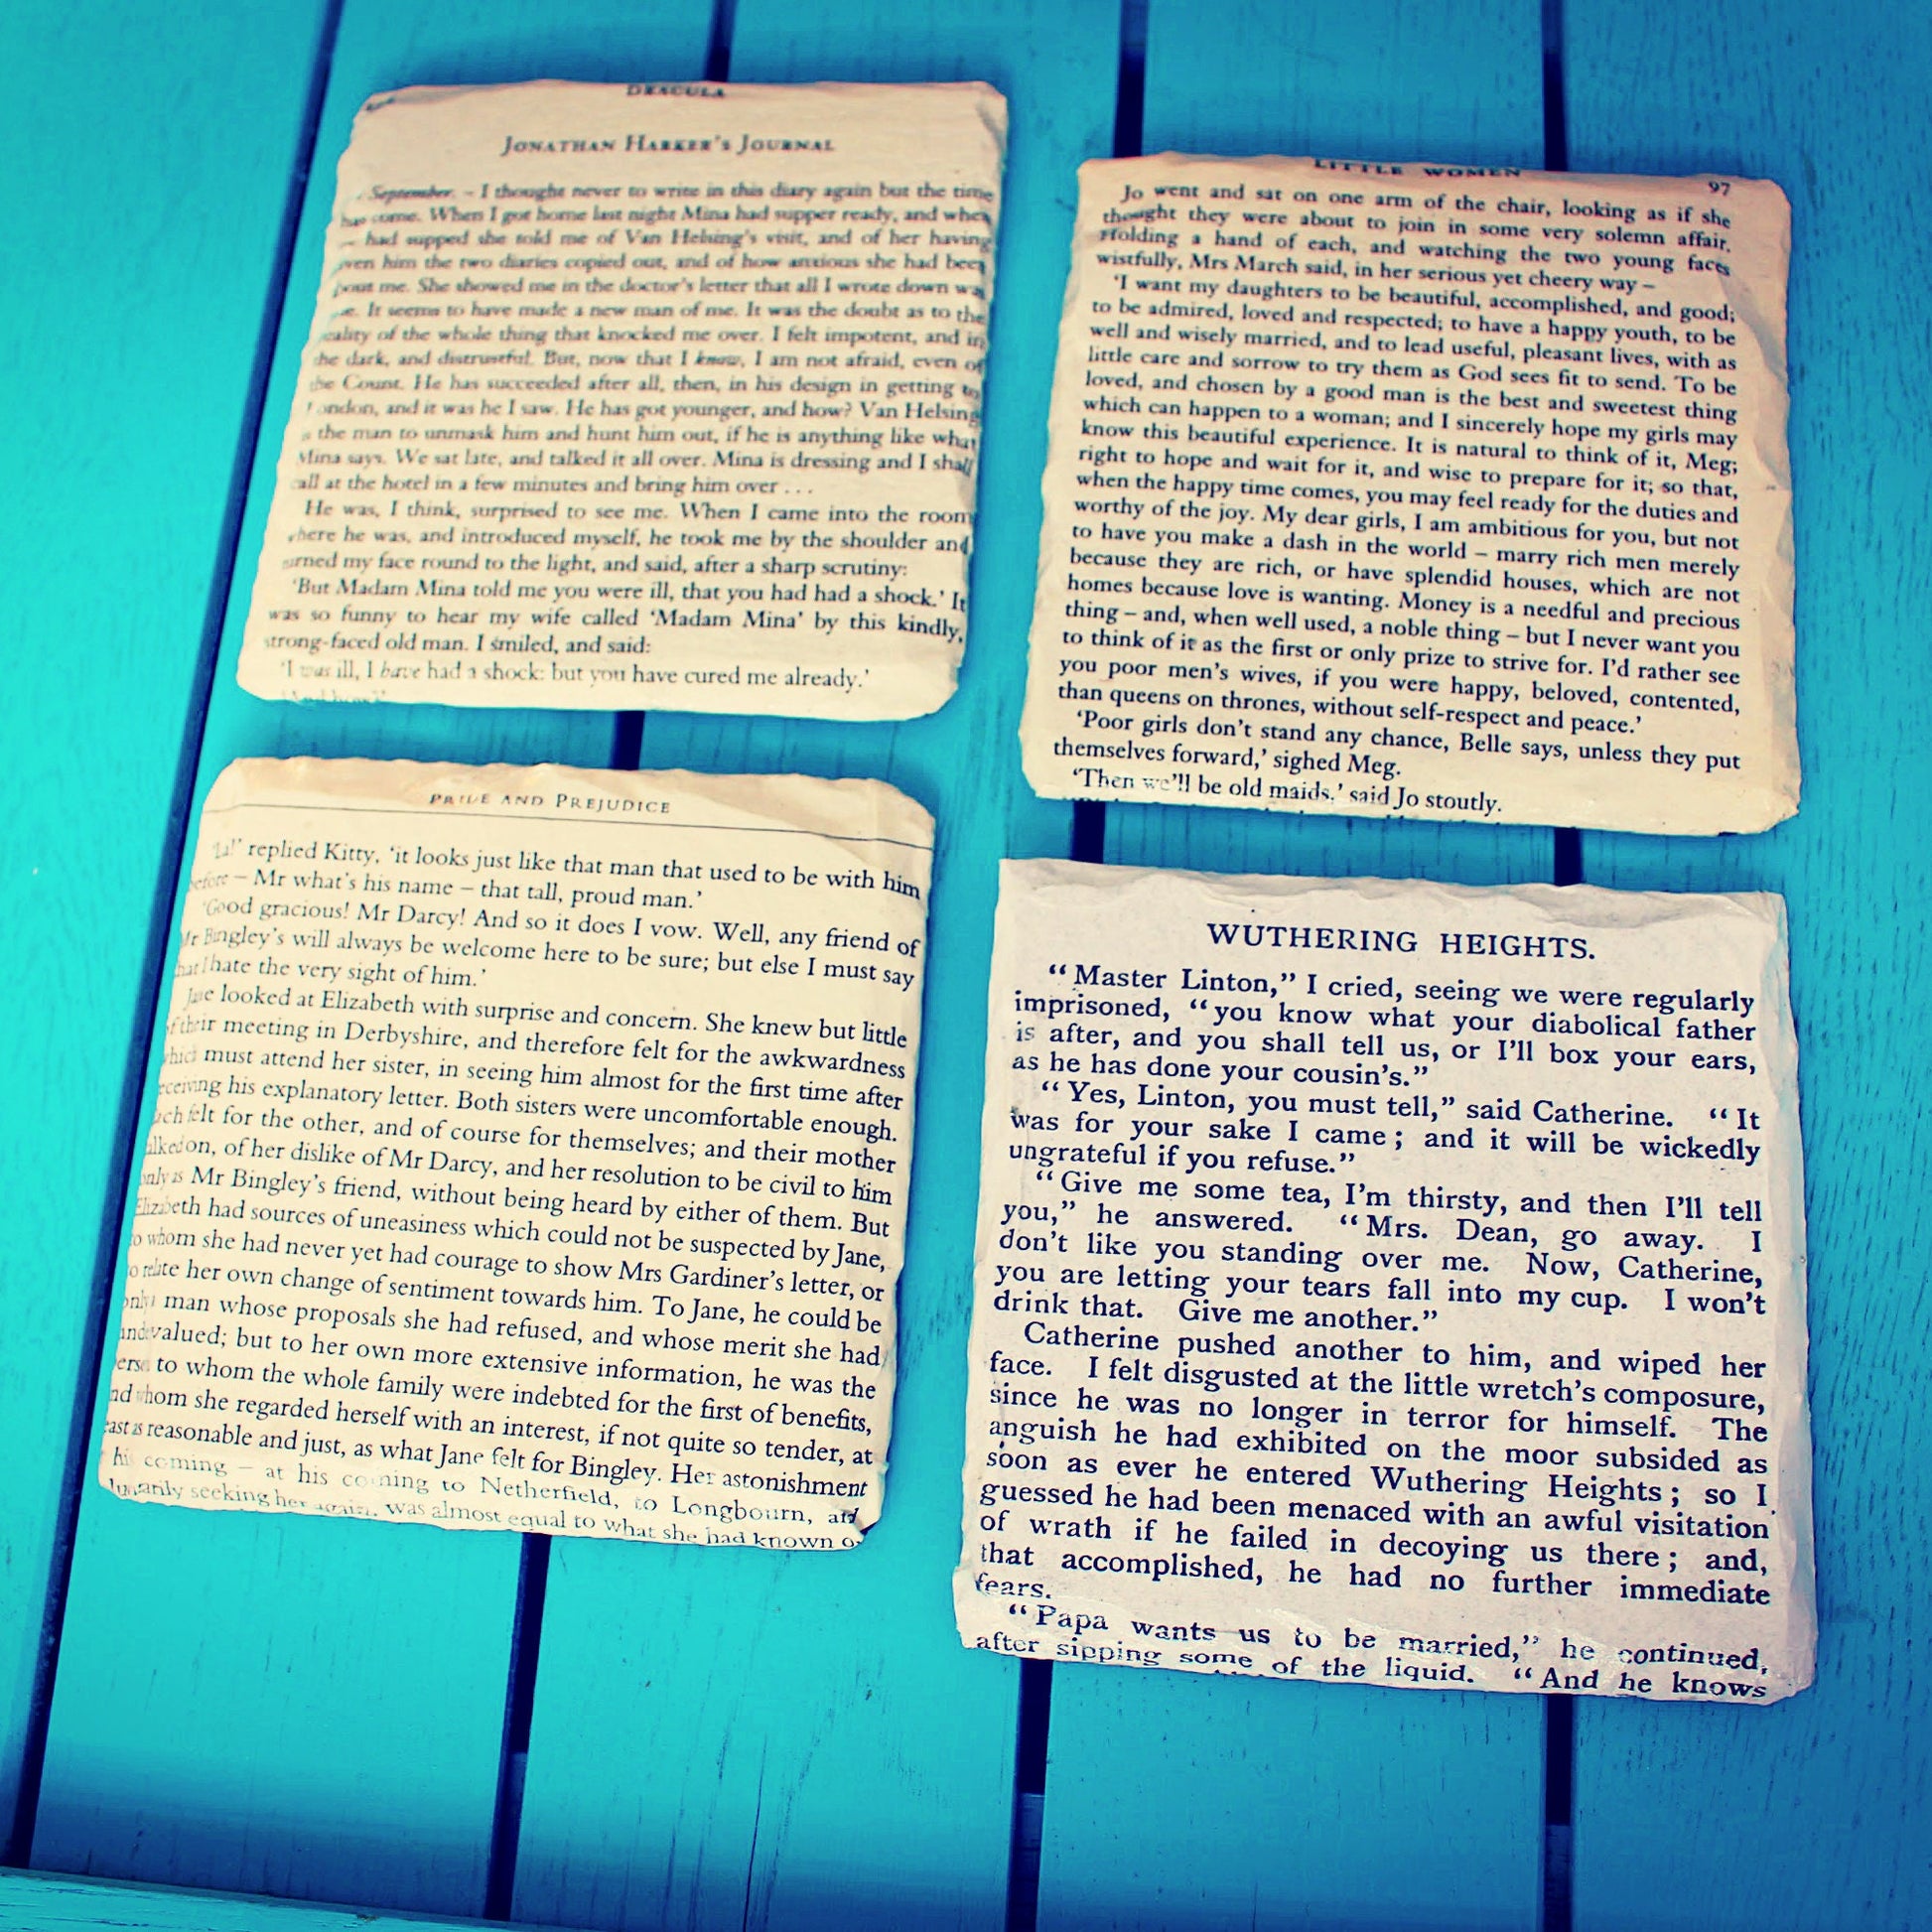 DRACULA
JONATHAN HARKER'S JOURNAL
September. – I thought never to write in this diary again but the time
has come. When I got home last night Mina had supper ready, and when
– had supped she told me of Van Helsing's visit, and of her having
him the two diaries copied out, and of how anxious she had been
me. She showed me in the doctor's letter that all I wrote down was
It seems to have made a new man of me. It was the doubt as to the
reality of the whole thing that knocked me over. I felt impotent, and in
the dark, and distrustful. But, now that I know, I am not afraid, even of
the Count. He has succeeded after all, then, in his design in getting to
London, and it was he I saw. He has got younger, and how? Van Helsing
the man to unmask him and hunt him out, if he is anything like what
Mina says. We sat late, and talked it all over. Mina is dressing and I shall
call at the hotel in a few minutes and bring him over . . .
He was, I think, surprised to see me. When I came into the room
where he was, and introduced myself, he took me by the shoulder and
my face round to the light, and said, after a sharp scrutiny:
'But Madam Mina told me you were ill, that you had had a shock.' It
was so funny to hear my wife called 'Madam Mina' by this kindly,
strong-faced old man. I smiled, and said:
'I was ill, I have had a shock: but you have cured me already.'
LITTLE WOMEN 97
Jo went and sat on one arm of the chair, looking as if she
thought they were about to join in some very solemn affair.
Holding a hand of each, and watching the two young faces
wistfully, Mrs March said, in her serious yet cheery way –
'I want my daughters to be beautiful, accomplished, and good;
to be admired, loved and respected; to have a happy youth, to be
well and wisely married, and to lead useful, pleasant lives, with as
little care and sorrow to try them as God sees fit to send. To be
loved, and chosen by a good man is the best and sweetest thing
which can happen to a woman; and I sincerely hope my girls may
know this beautiful experience. It is natural to think of it, Meg;
right to hope and wait for it, and wise to prepare for it; so that,
when the happy time comes, you may feel ready for the duties and
worthy of the joy. My dear girls, I am ambitious for you, but not
to have you make a dash in the world – marry rich men merely
because they are rich, or have splendid houses, which are not
homes because love is wanting. Money is a needful and precious
thing – and, when well used, a noble thing – but I never want you
to think of it as the first or only prize to strive for. I'd rather see
you poor men's wives, if you were happy, beloved, contented,
than queens on thrones, without self-respect and peace.'
'Poor girls don't stand any chance, Belle says, unless they put
themselves forward,' sighed Meg.
'Then we'll be old maids,' said Jo stoutly.
PRIDE AND PREJUDICE
'La!' replied Kitty, 'it looks just like that man that used to be with him
before – Mr what's his name – that tall, proud man.'
'Good gracious! Mr Darcy! And so it does I vow. Well, any friend of
Mr Bingley's will always be welcome here to be sure; but else I must say
that I hate the very sight of him.'
Jane looked at Elizabeth with surprise and concern. She knew but little
of their meeting in Derbyshire, and therefore felt for the awkwardness
which must attend her sister, in seeing him almost for the first time after
receiving his explanatory letter. Both sisters were uncomfortable enough.
Each felt for the other, and of course for themselves; and their mother
talked on, of her dislike of Mr Darcy, and her resolution to be civil to him
only as Mr Bingley's friend, without being heard by either of them. But
Elizabeth had sources of uneasiness which could not be suspected by Jane,
to whom she had never yet had courage to show Mrs Gardiner's letter, or
to relate her own change of sentiment towards him. To Jane, he could be
only a man whose proposals she had refused, and whose merit she had
undervalued; but to her own more extensive information, he was the
person to whom the whole family were indebted for the first of benefits,
and whom she regarded herself with an interest, if not quite so tender, at
least as reasonable and just, as what Jane felt for Bingley. Her astonishment
his coming – at his coming to Netherfield, to Longbourn, and
seeking her again, was almost equal to what she had known
WUTHERING HEIGHTS.
"Master Linton," I cried, seeing we were regularly
imprisoned, "you know what your diabolical father
is after, and you shall tell us, or I'll box your ears,
as he has done your cousin's."
"Yes, Linton, you must tell," said Catherine. "It
was for your sake I came; and it will be wickedly
ungrateful if you refuse."
"Give me some tea, I'm thirsty, and then I'll tell
you," he answered. "Mrs. Dean, go away. I
don't like you standing over me. Now, Catherine,
you are letting your tears fall into my cup. I won't
drink that. Give me another."
Catherine pushed another to him, and wiped her
face. I felt disgusted at the little wretch's composure,
since he was no longer in terror for himself. The
anguish he had exhibited on the moor subsided as
soon as ever he entered Wuthering Heights; so I
guessed he had been menaced with an awful visitation
of wrath if he failed in decoying us there; and,
that accomplished, he had no further immediate
fears.
"Papa wants us to be married," he continued,
after sipping some of the liquid. "And he knows